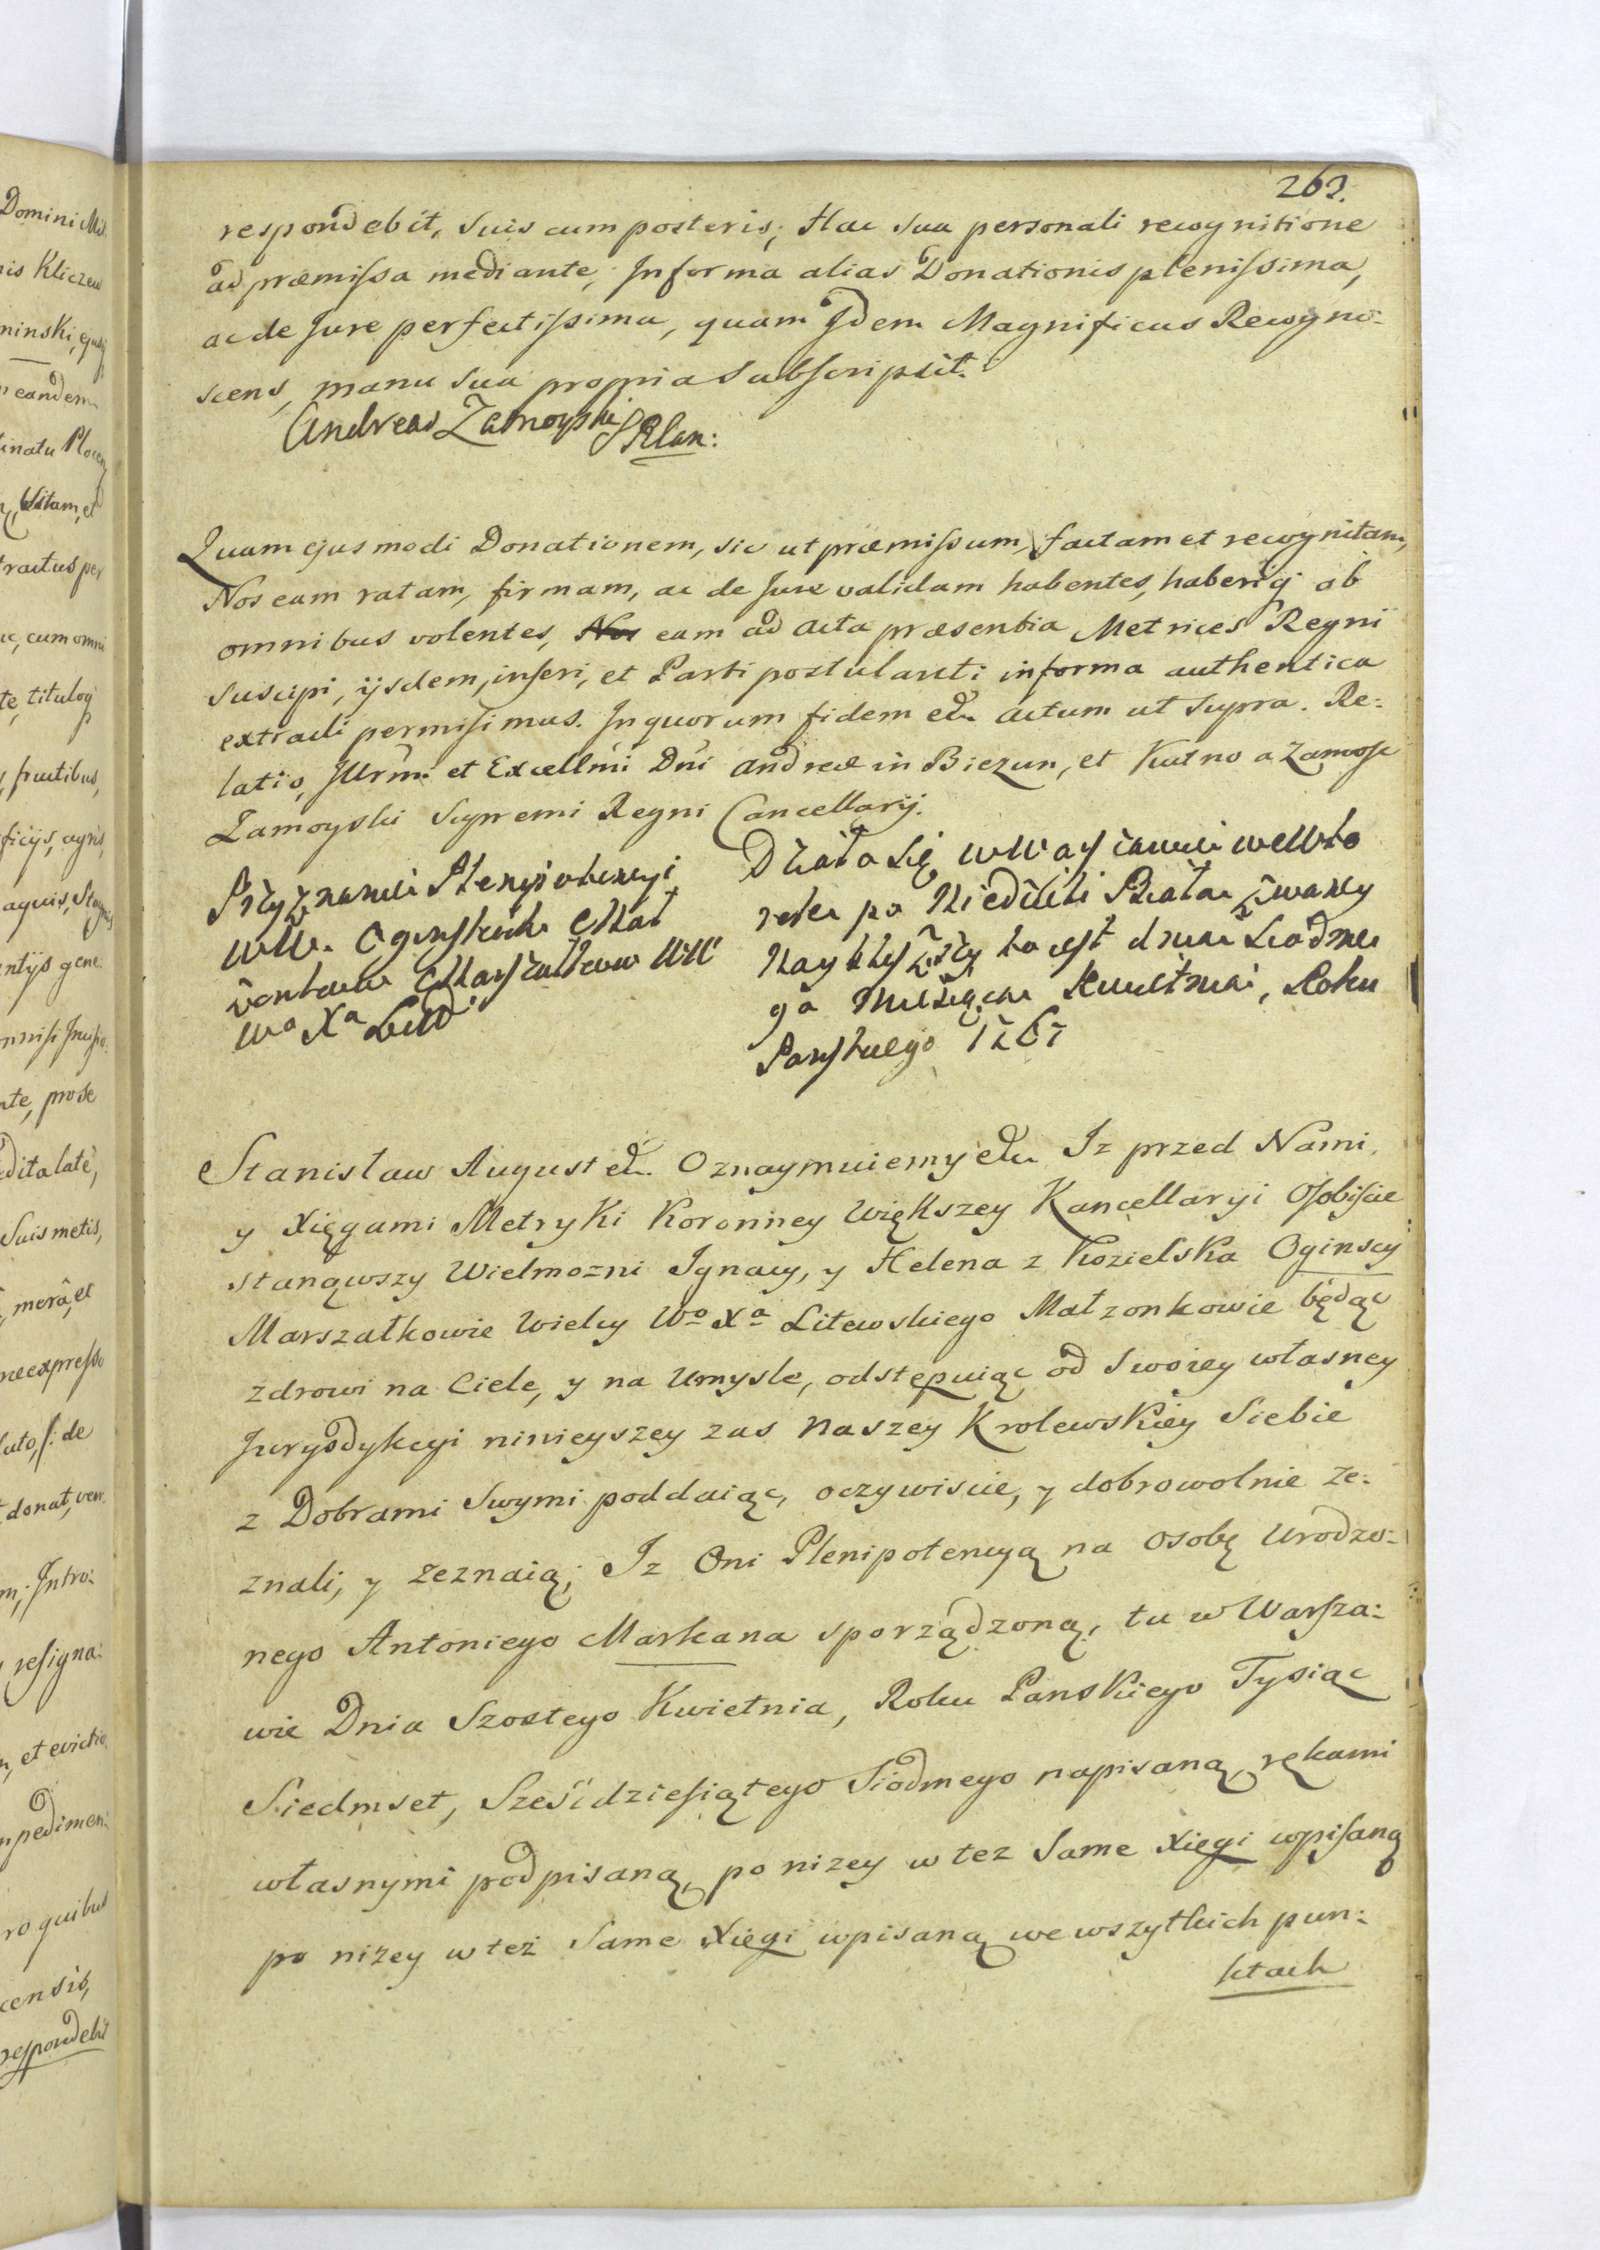 263.
respondebit, suis cum posteris; Hac sua personali recognitione
ad præmissa mediante; In forma alias Donationis plenissima,
ac de Jure perfectissima, quam Idem Magnificus Recogno:
scens, manu sua propria subscripsit.
Andreas Zamoyski
Quam ejusmodi Donationem, sic ut præmissum, factam et recognitam,
Nos eam ratam, firmam, ac de Jure validam habentes, haberiq ab
omnibus volentes, Nos eam ad Acta præsentia Metrices Regni
suscipi, ijsdem, inseri, et Parti postulanti in forma authentica
extradi permisimus. In quorum fidem etc. Actum ut supra. Re:
latio, Illrmi et Excellmi Dni Andreæ in Biezun, et Kutno a Zamosc
Zamoyski Supremi Regni Cancellarij.
Przyznanie Plenipotencyi
WW. Oginskich Mał
żonkow Marszałkow WW
Wo Xa Litt
Działo się w Warszawie we Wto
rek po Niedzieli Białey zwaney
nayblizszy to jest dnia siodme
go Miesiąca Kwietnia, Roku
Panskiego 1767
Stanisław August etc. Oznaymuiemy etc. Iz przed Nami,
y Xięgami Metryki Koronney większey Kancellaryi Osobiscie
stanąwszy Wielmozni Ignacy, y Helena z Kozielska Oginscy
Marszałkowie Wielcy Wo Xa Litewskiego Małzonkowie będąc
zdrowi na Ciele, y na Umysle, odstępuiąc od swoiey własney
Jurysdykcyi ninieyszey zas Naszey Krolewskiey Siebie
z Dobrami Swymi poddaiąc, oczywiscie, y dobrowolnie ze:
znali, y zeznaią; Iz Oni Plenipotencyą na osobę Urodzo:
nego Antoniego Markana sporządzoną, tu w Warsza:
wie Dnia Szostego Kwietnia, Roku Panskiego Tysiąc
Siedmset, Sześćdziesiątego Siodmego napisaną rękami
własnymi podpisaną, ponizey w tez same Xięgi wpisaną
po nizey w też same Xięgi wpisaną we wszytkich pun:
ktach